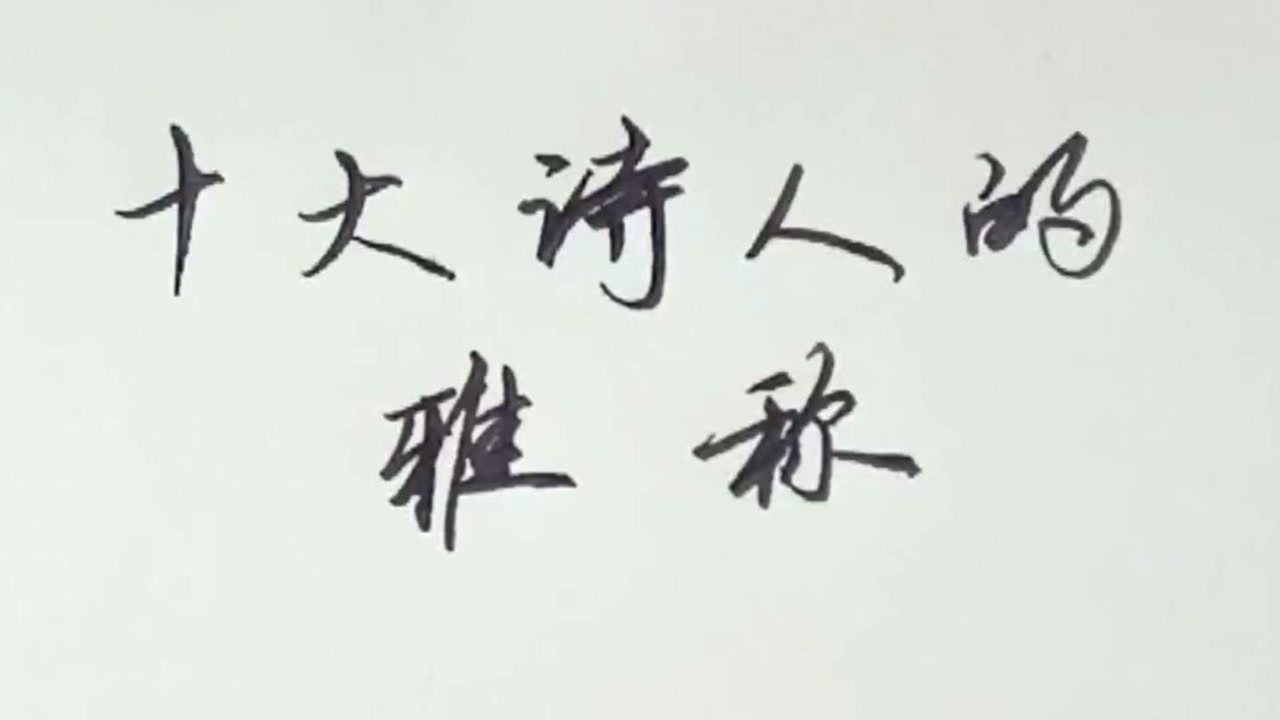 十大诗人的
雅称